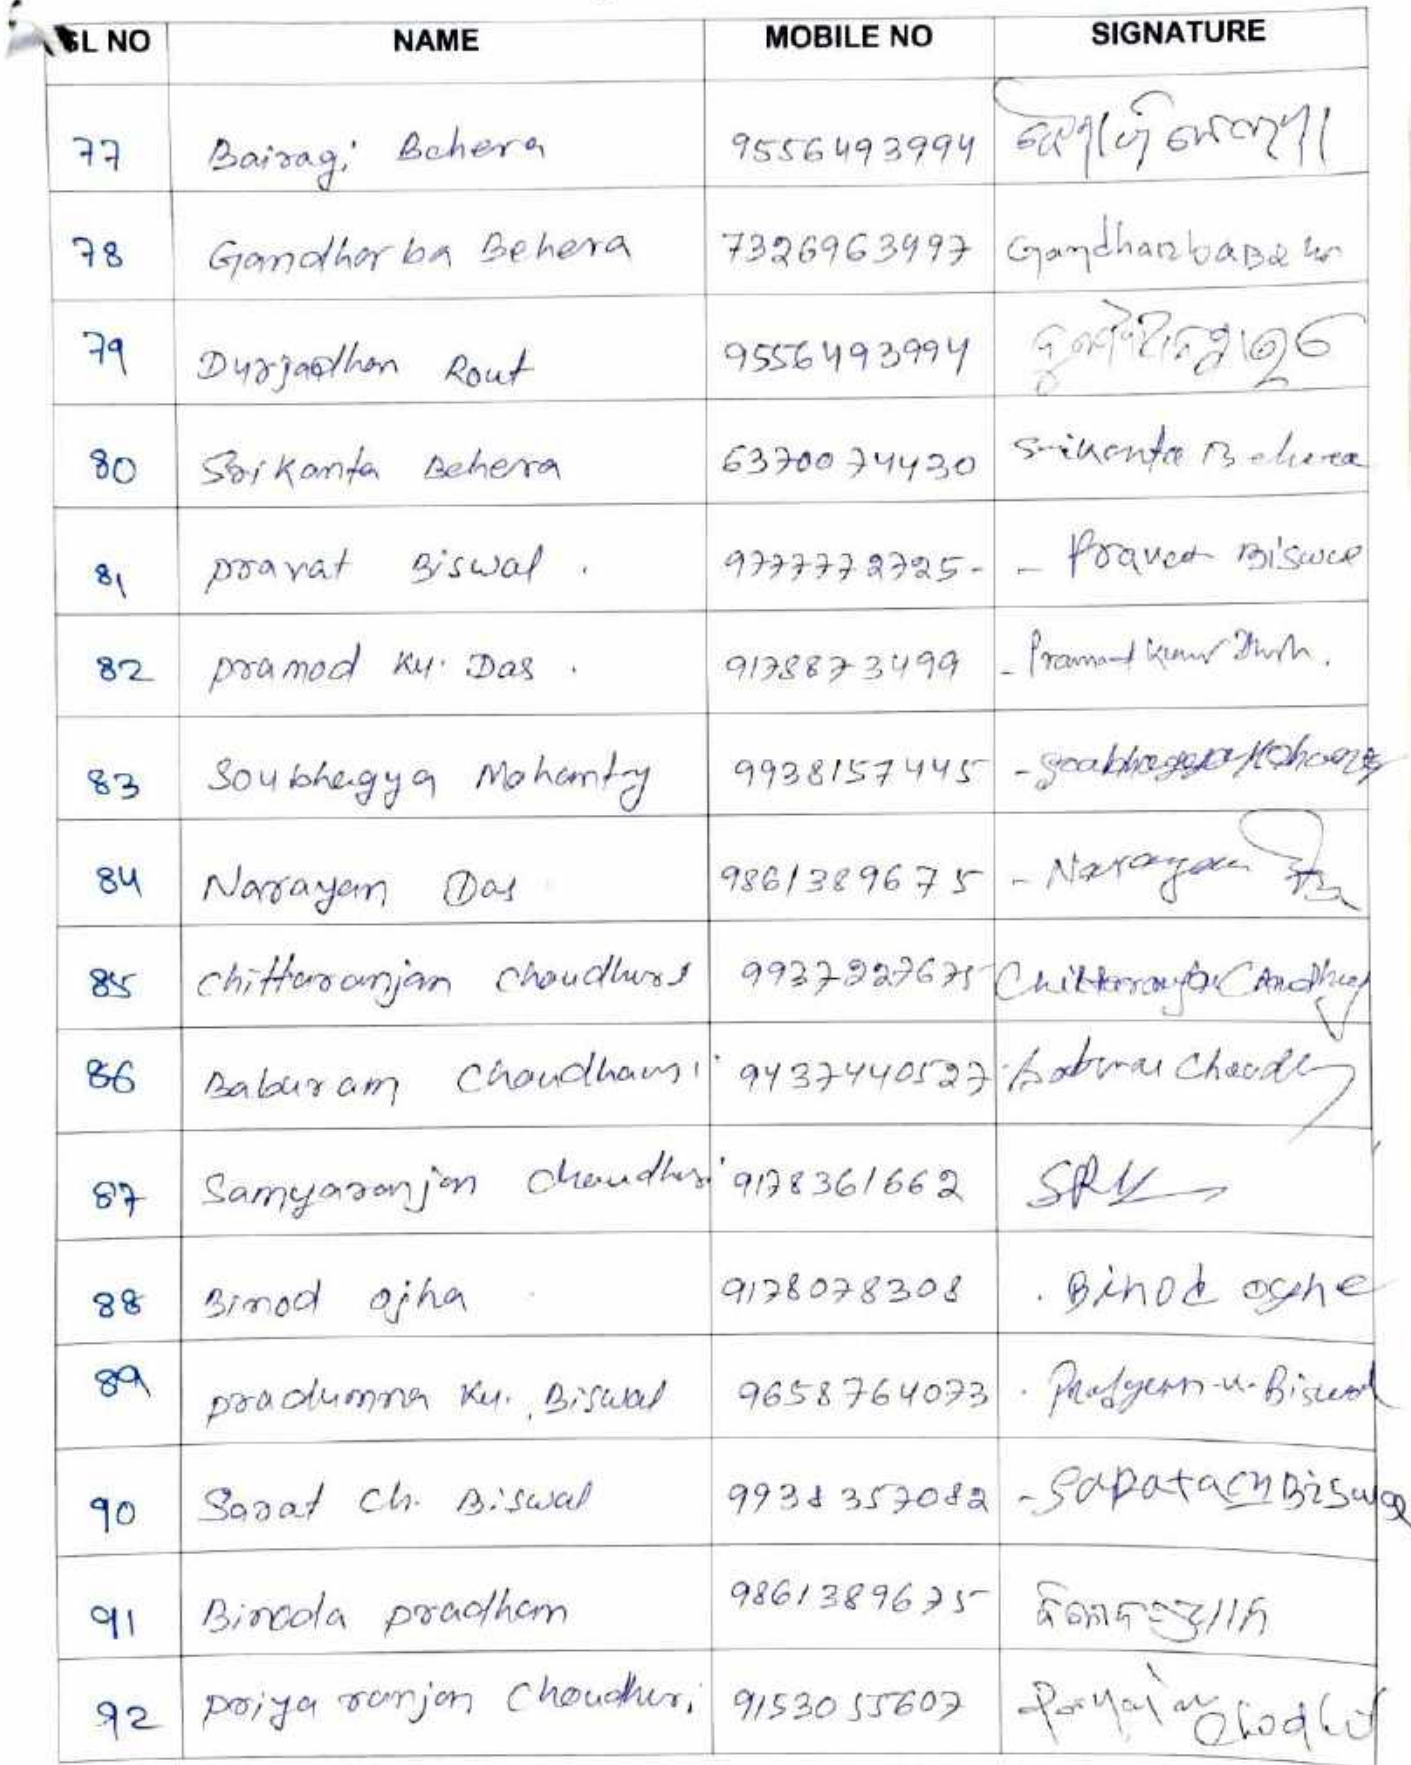 SL NO NAME MOBILE NO SIGNATURE
77 Bairagi Behera 9556493994
78 Gandharba Behera 7326963997 Gandharba
79 Durjadhan Rout 9556493994
80 Srikanta Behera 6370074430 Srikanta Behera
81 pravat Biswal . 9777772725- - Pravat Biswal
82 pramod Ku. Das . 9178873499 - Pramod Kumar
83 Soubhagya Mohanty 9938157445 - Soubhagya Mohanty
84 Narayan Das 9861389675 - Narayan
85 Chittaranjan Choudhuri 9937227675 Chittaranjan
86 Baburam Choudhauri 9437440527
87 Samyaranjan Choudhuri 9178361662
88 Binod ojha 9178078308 . Binod
89 pradumna Ku. Biswal 9658764073 . Biswal
90 Sarat Ch. Biswal 9938357082 - Sarata Ch Biswal
91 Binoda pradhan 9861389675
92 priya ranjan Choudhuri 9153055607